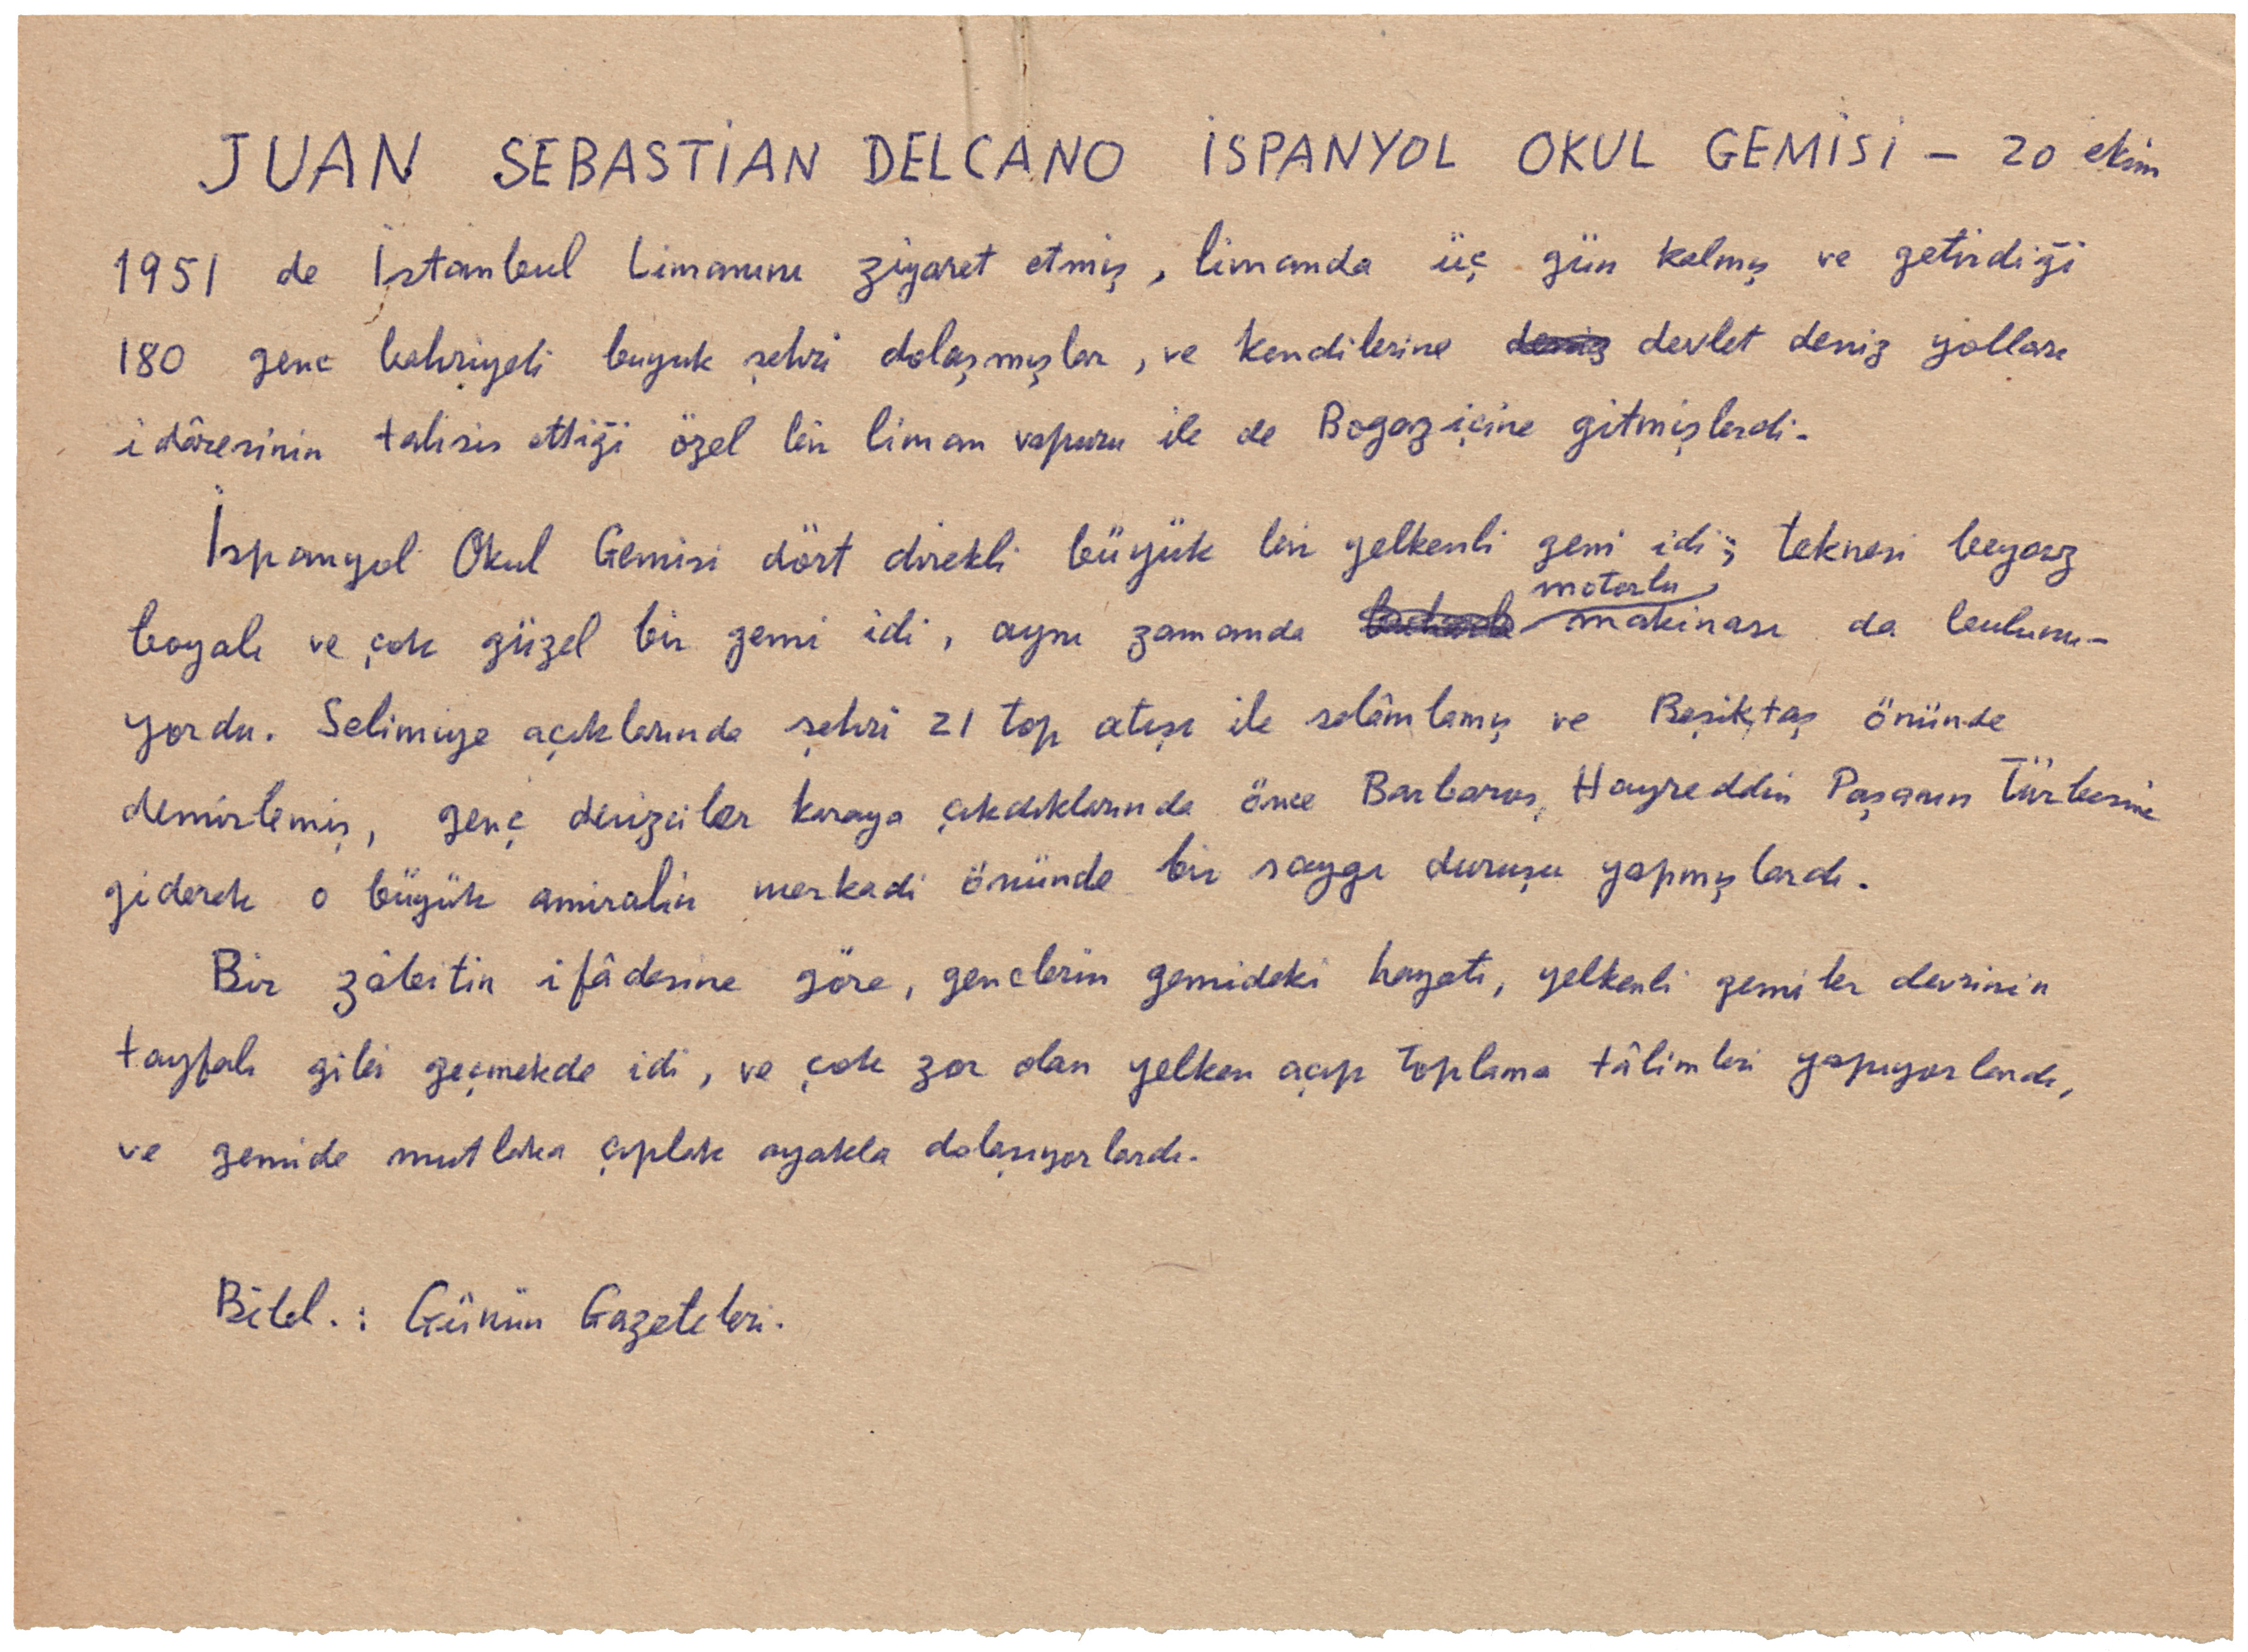 JUAN SEBASTİAN DELCANO İSPANYOL OKUL GEMİSİ – 20 ekim
1951 de İstanbul Limanını ziyaret etmiş, limanda üç gün kalmış ve getirdiği
180 genc bahriyeli buyuk şehri dolaşmışlar, ve kendilerine deniz devlet deniz yolları
idâresinin tahsis ettiği özel bir liman vapuru ile de Bogaziçine gitmişlerdi.
İspanyol Okul Gemisi dört direkli büyük bir yelkenli gemi idi; teknesi beyaz
motorlu
boyalı ve çok güzel bir gemi idi, aynı zamanda makinası da bulunu-
yordu. Selimiye açıklarında şehri 21 top atışı ile selâmlamış ve Beşiktaş önünde
demirlemiş, genç denizciler karaya çıkdıklarında önce Barbaros Hayreddin Paşanın Türbesine
giderek o büyük amiralin merkadi önünde bir saygı duruşu yapmışlardı.
Bir zâbitin ifâdesine göre, genclerin gemideki hayatı, yelkenli gemiler devrinin
tayfalı gibi geçmekde idi, ve çok zor olan yelken açıp toplama tâlimleri yapıyorlardı,
ve gemide mutlaka çıplak ayakla dolaşıyorlardı.
Bibl. : Günün Gazeteleri.